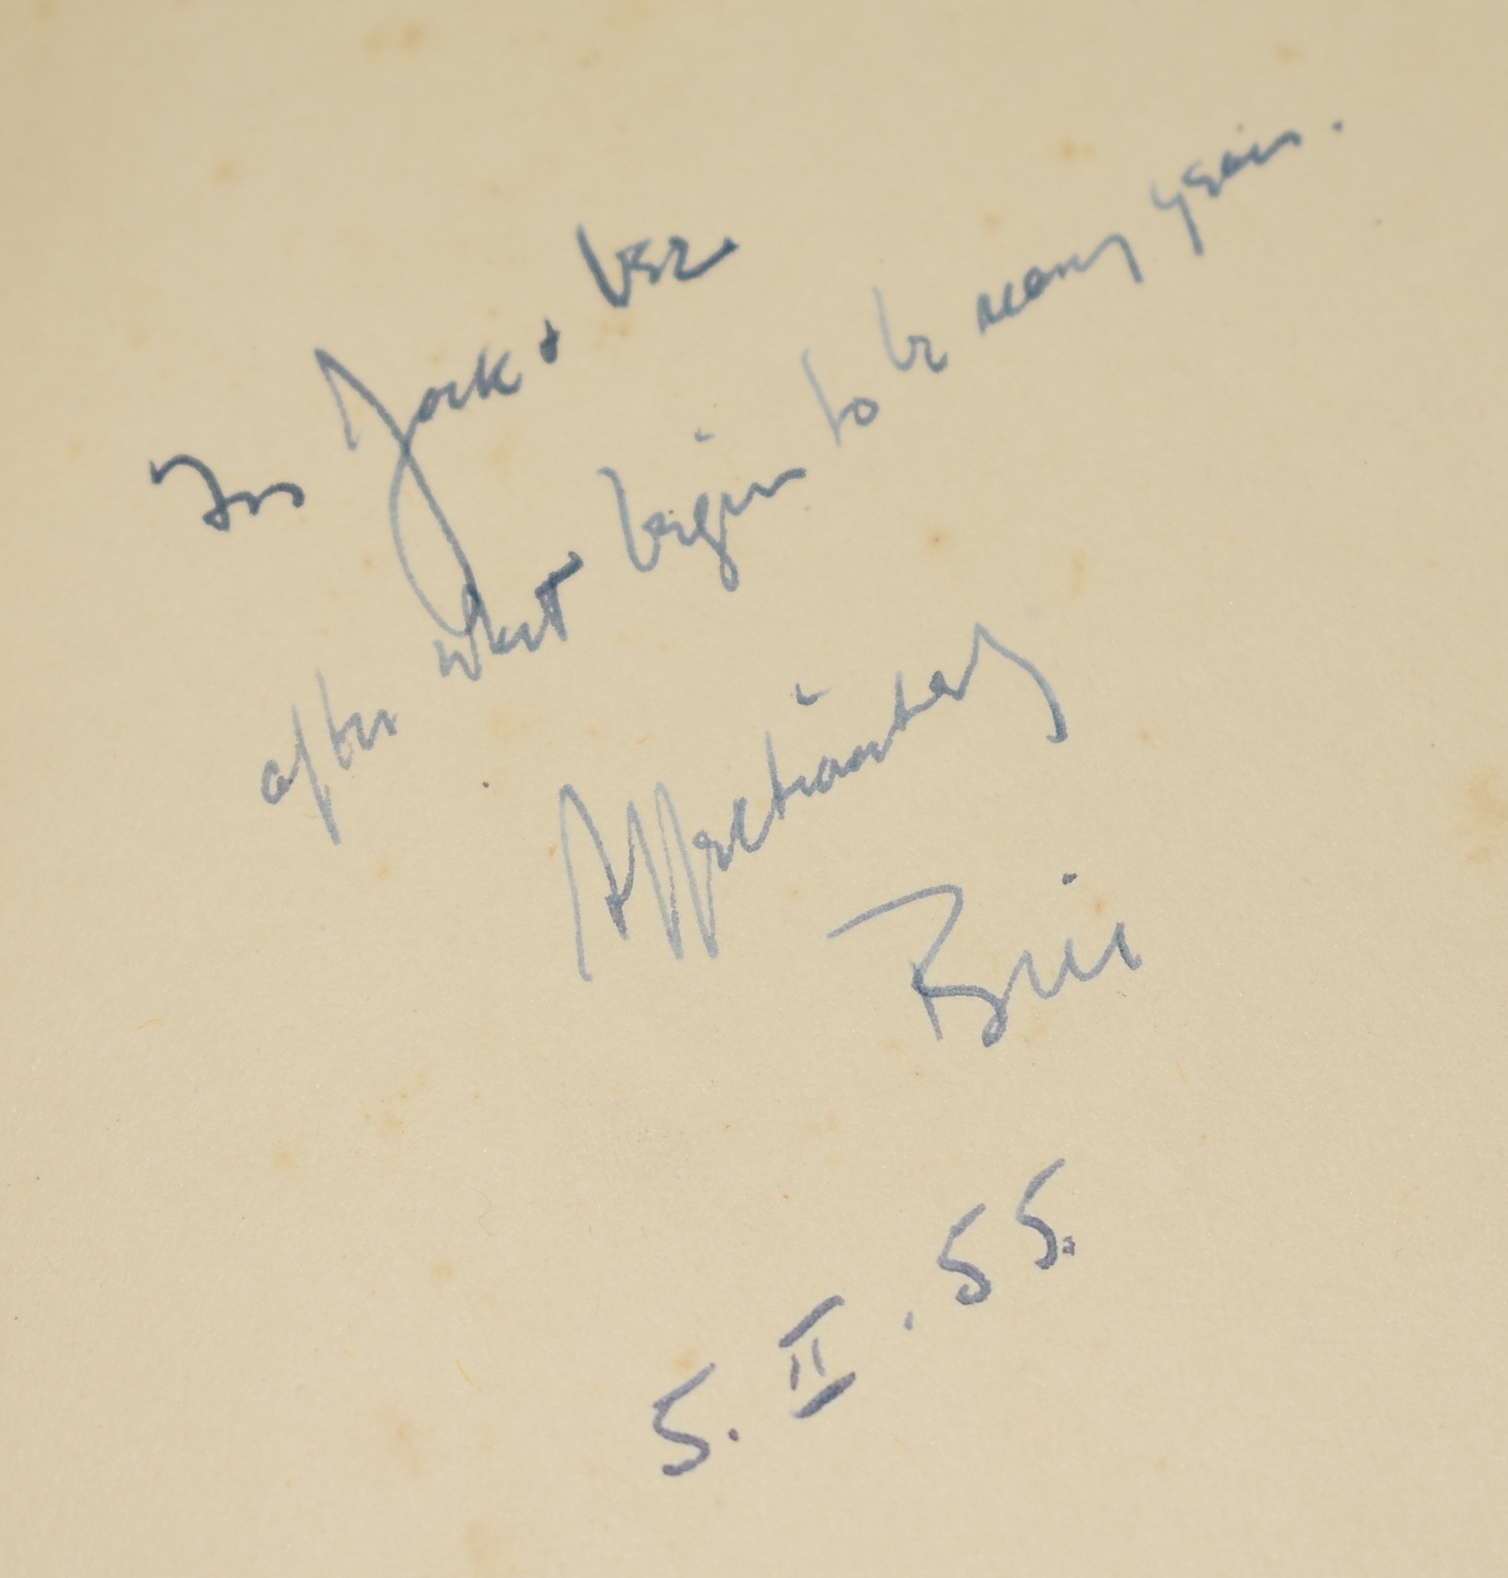 For Jack & Bez
after what begin to be many years.
Affectionately
Bill
5. II . 55.